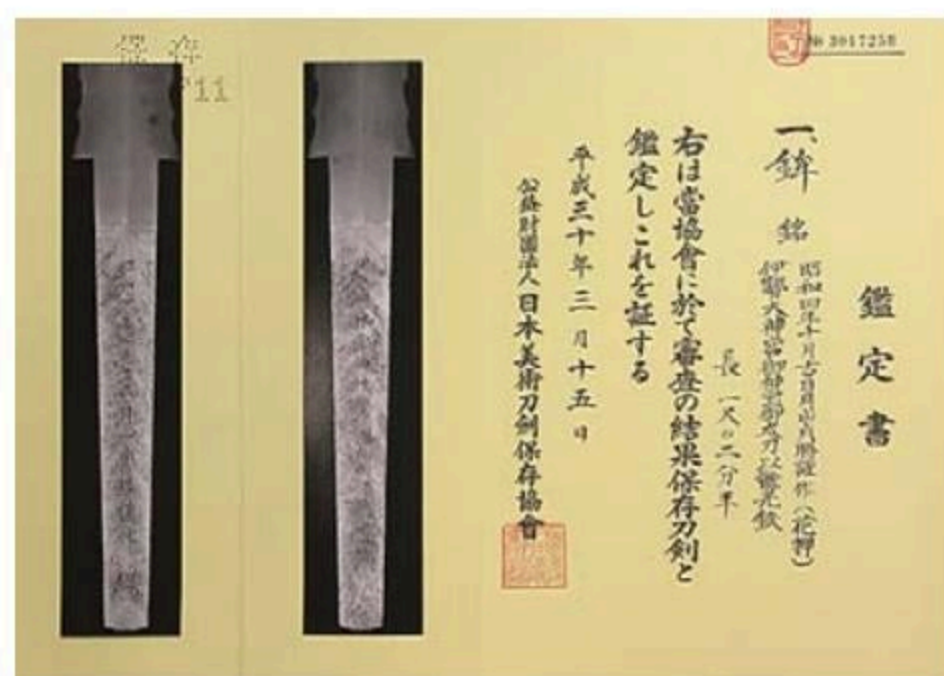 № 3017258
鑑定書
一、鉾 銘
昭和四年十月吉日固山勝謹作(花押)
伊勢大神宮御神宝御太刀以餘光鉄
長 一尺〇二分半
右は當協會に於て審査の結果保存刀剣と
鑑定しこれを証する
平成三十年三月十五日
公益財團法人 日本美術刀剣保存協會
保存
11